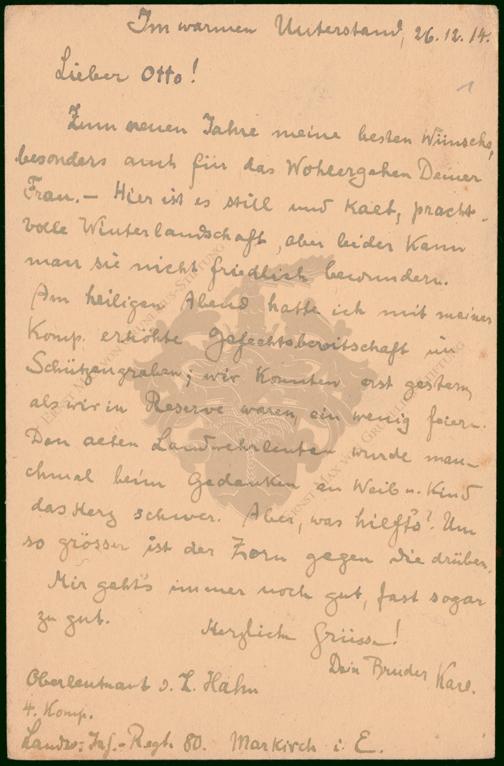 Im warmen Unterstand, 26.12.14.
Lieber Otto!
Zum neuen Jahre meine besten Wünsche,
besonders auch für das Wohlergehen Deiner
Frau. – Hier ist es still und kalt, pracht-
volle Winterlandschaft, aber leider kann
man sie nicht friedlich bewundern.
Am heiligen Abend hatte ich mit meiner
Komp. erhöhte Gefechtsbereitschaft im
Schützengraben; wir konnten erst gestern,
als wir in Reserve waren, ein wenig feiern.
Den alten Landwehrleuten wurde man-
chmal beim Gedanken an Weib u. Kind
das Herz schwer. Aber, was hilft's? Um
so grösser ist der Zorn gegen die drüben.
Mir geht's immer noch gut, fast sogar
zu gut.
Herzliche Grüsse!
Dein Bruder Karl.
Oberleutnant d. L. Hahn
4. Komp.
Landw.-Inf.-Regt. 80. Markirch i. E.
ERNST MAX VON GRUNELIUS-STIFTUNG
ERNST MAX VON GRUNELIUS-STIFTUNG